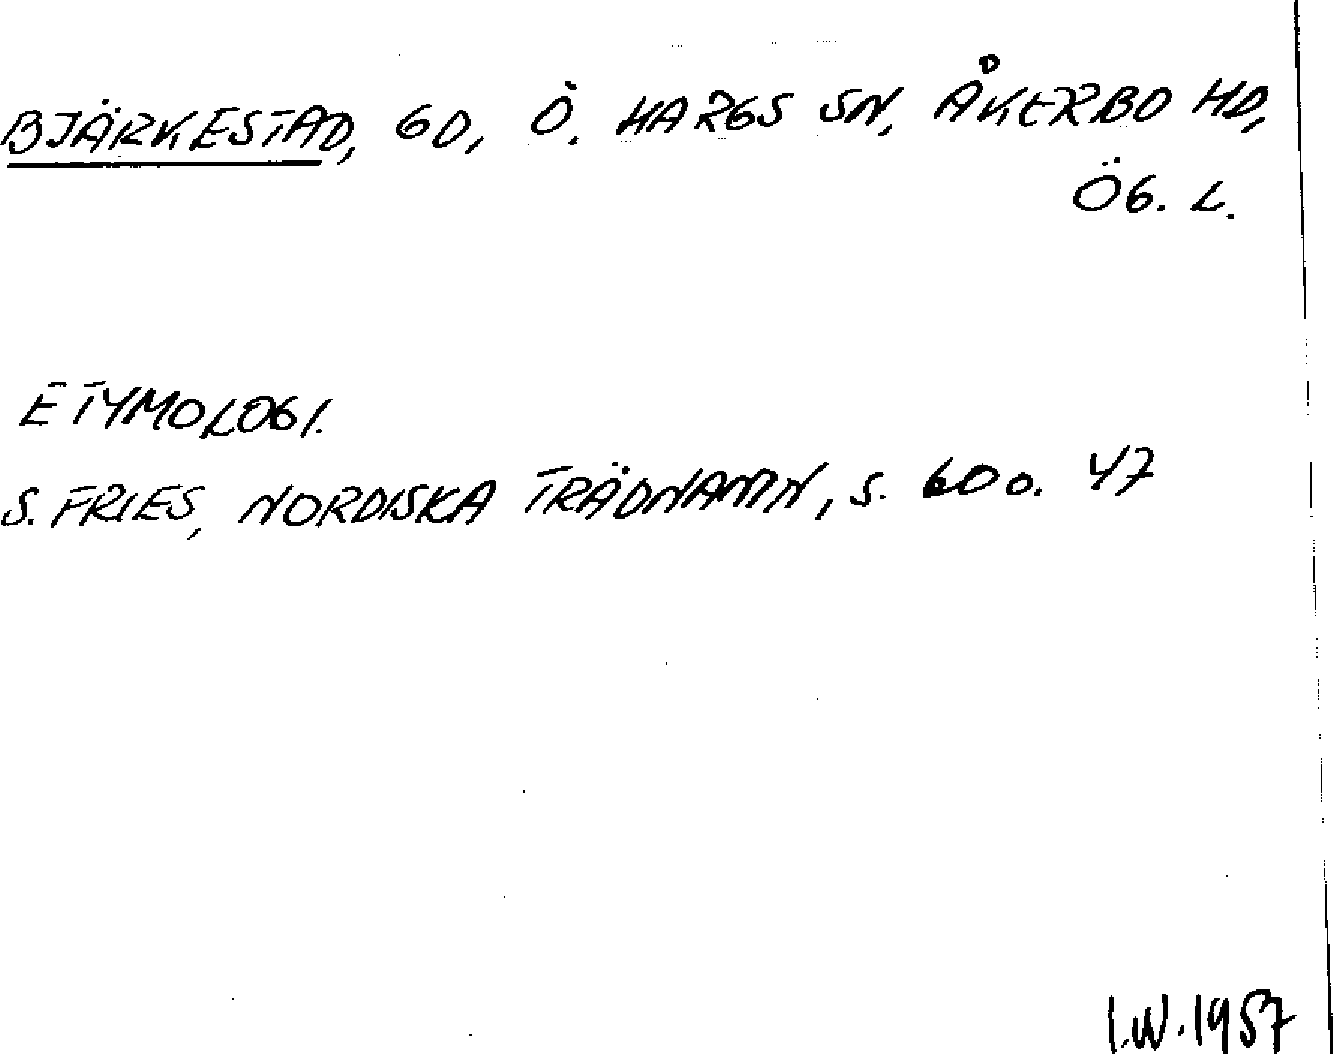 BJÄRKESTAD, GD, Ö. HARGS SN, ÅKERBO HD,
ÖG. L.
ETYMOLOGI.
S. FRIES, NORDISKA TRÄDNAMN, S. 60 o. 47
I.W. 1957